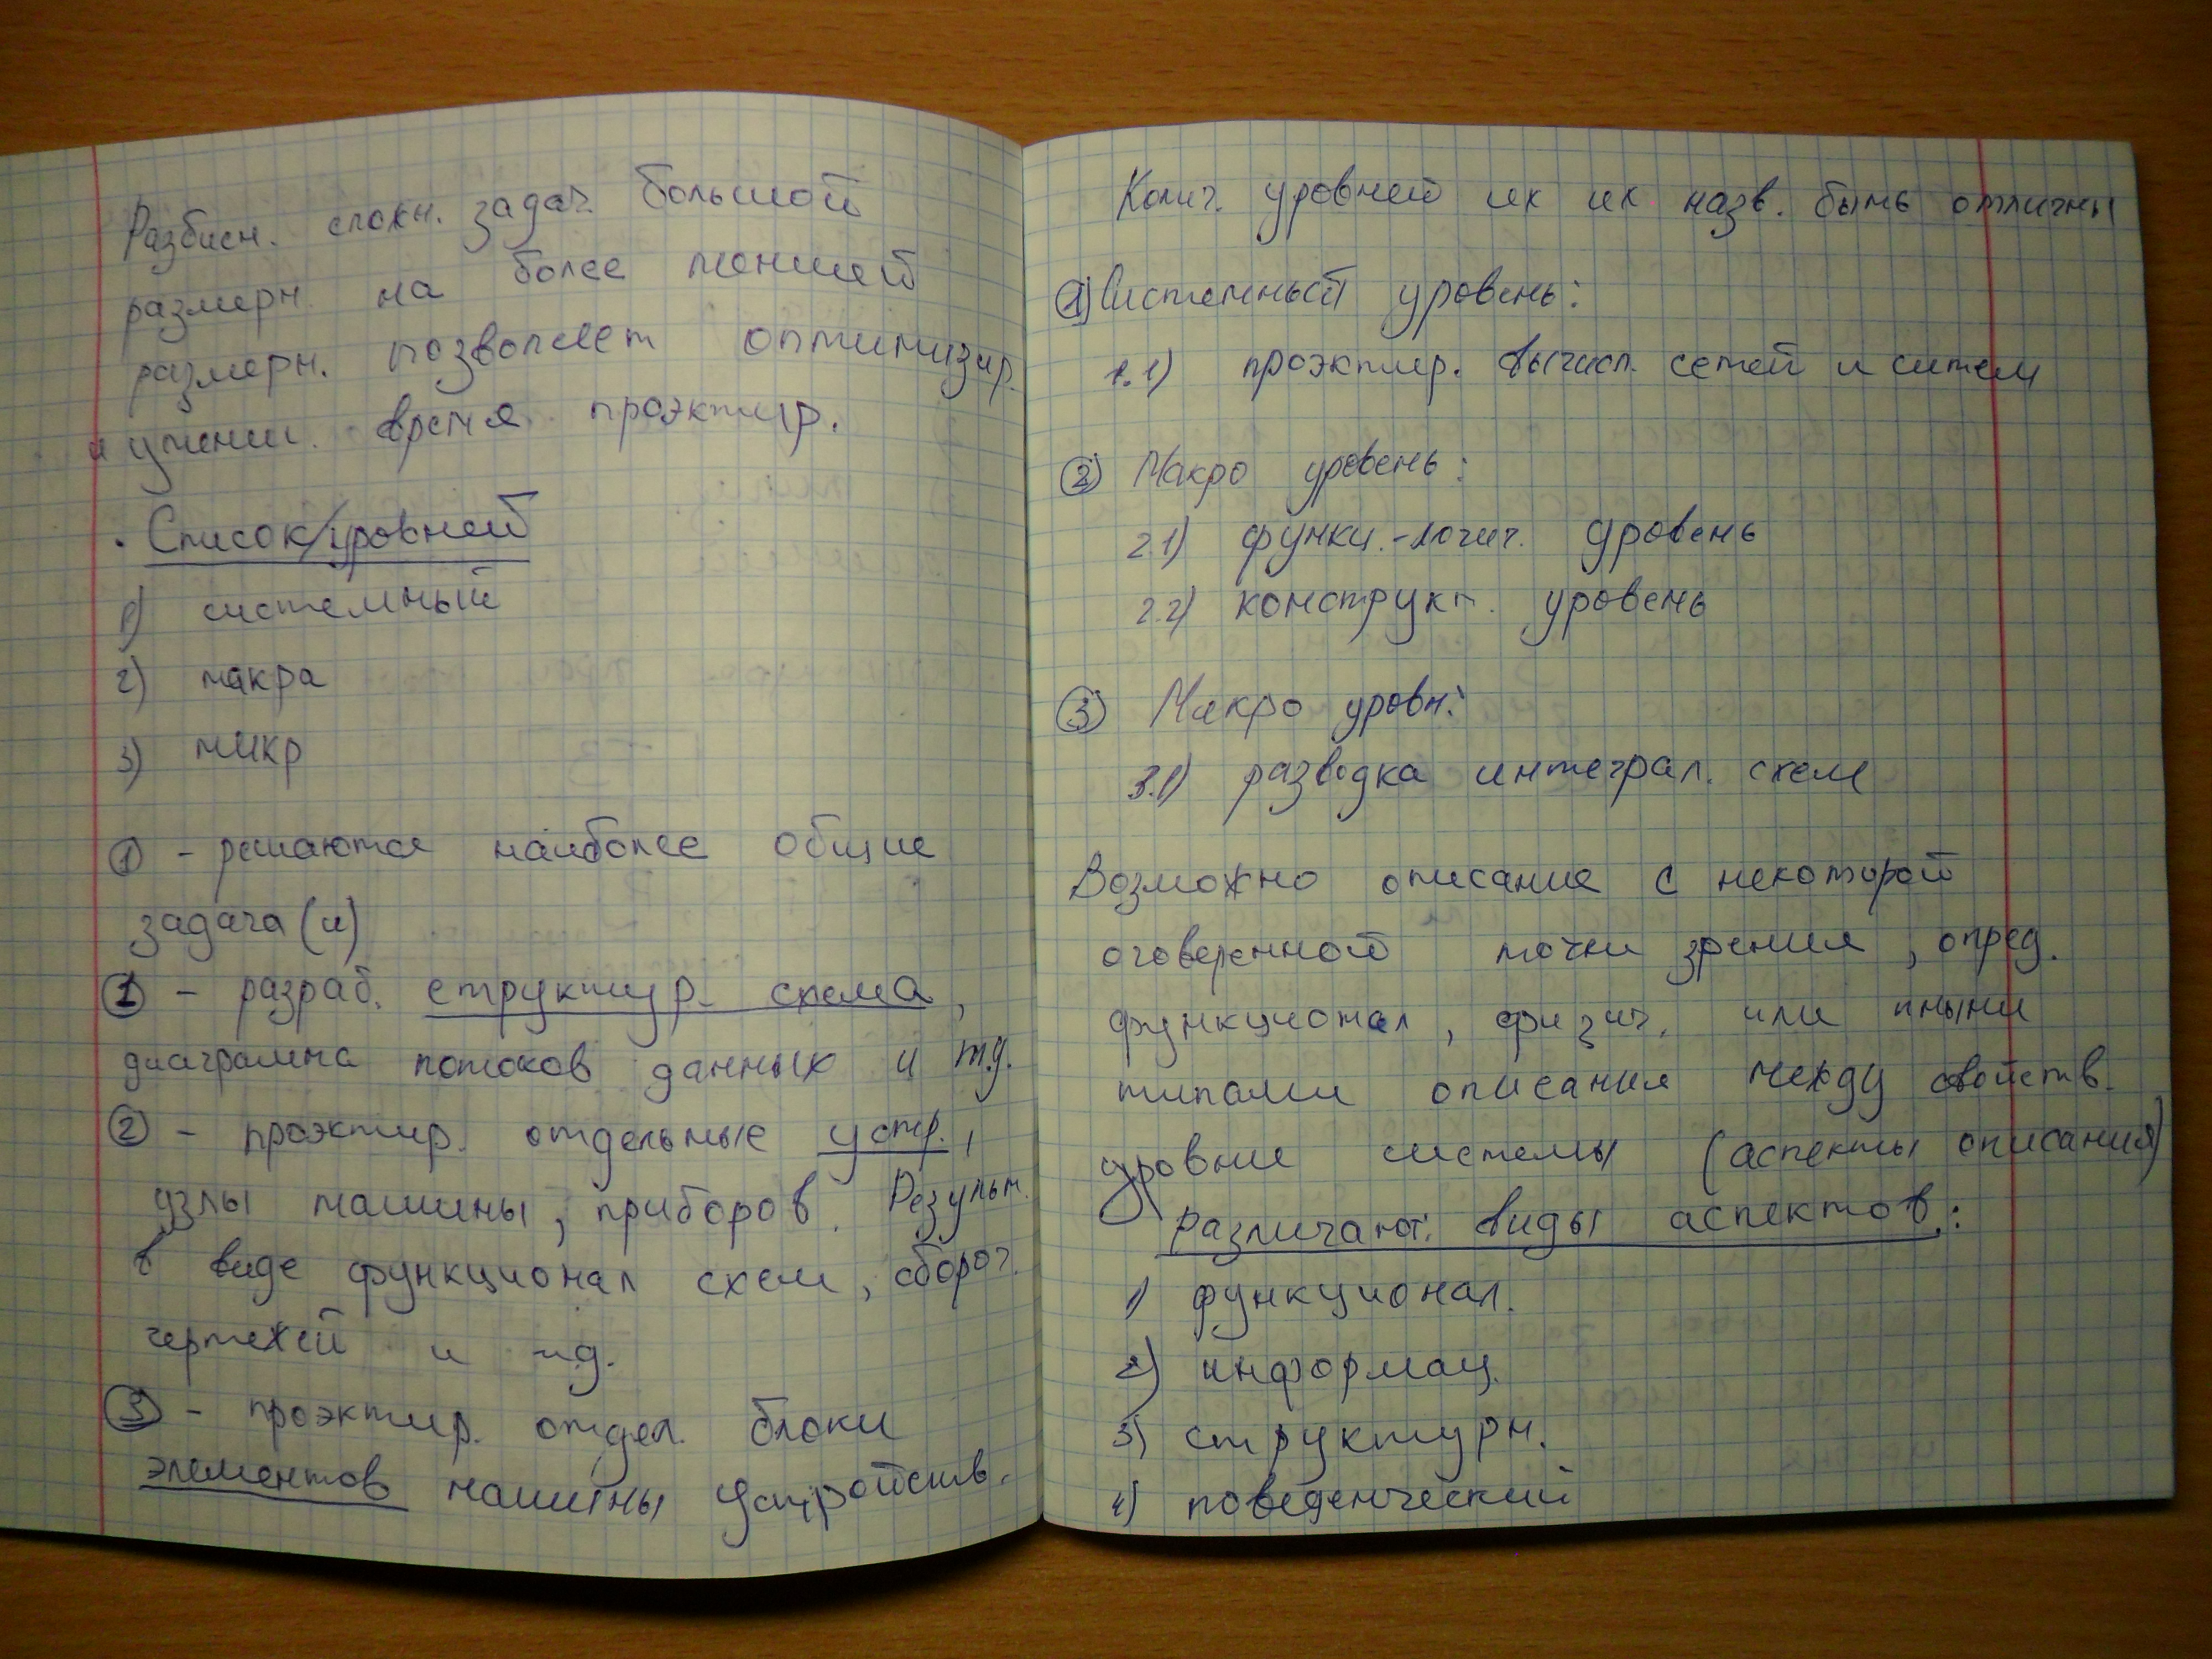 Разбиен. сложн. задач большой
размерн. на более меншей
размерн. позволяет оптимизир.
и уменш. время проэктир.
. Список/уровней
1) системный
2) макра
3) микр
① - решаются наиболее общие
задача (и)
① - разраб. структур. схема,
диаграмма потоков данных и т.д.
② - проэктир. отдельные устр.,
узлы машины, приборов. Результ.
в виде функционал схем, сбороч.
чертежей и тд.
③ - проэктир. отдел. блоки
элементов машины устройств.
Колич. уровней их их назв. быть отличны
①) Системный уровень:
1.1) проэктир. вычисл. сетей и систем
② Макро уровень:
2.1) функц.-логич. уровень
2.2) конструкт. уровень
③ Микро уровн:
3.1) разводка интеграл. схем
Возможно описание с некоторой
оговеренной точки зрения, опред.
функционал, физич. или иными
типами описания между свойств.
уровни системы (аспекты описания)
Различают. виды аспектов.:
1) функционал.
2) информац.
3) структурн.
4) поведенческий